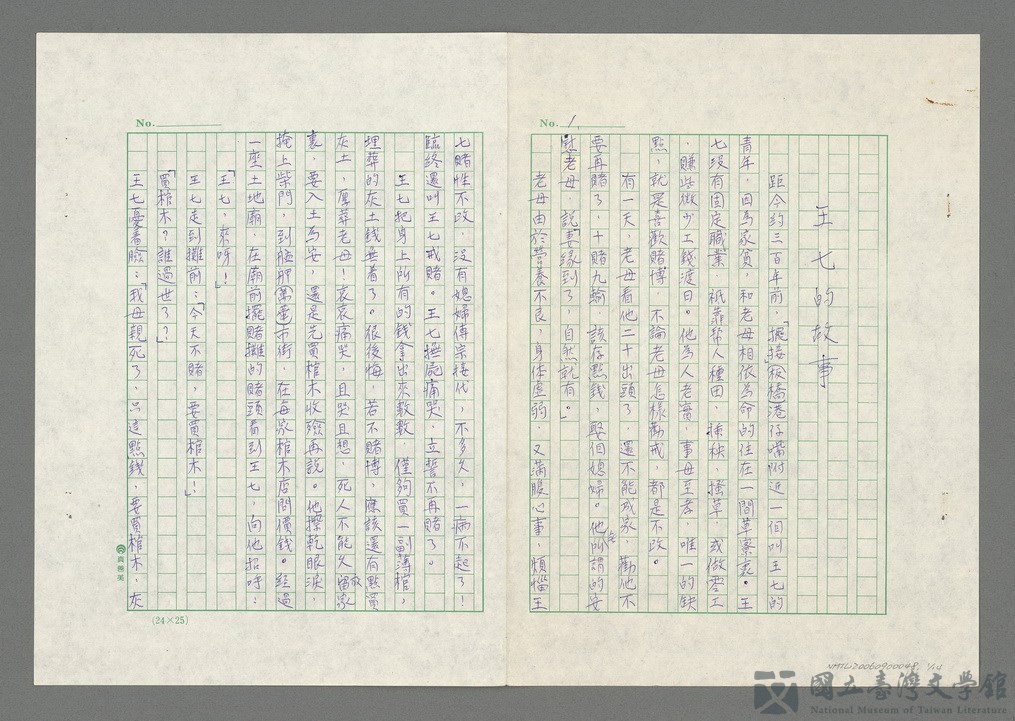 No. 1
王七的故事
距今約三百年前,「擺接」板橋港仔嘴附近一個叫王七的
青年,因為家貧,和老母相依為命的住在一間草寮裏。王
七沒有固定職業,祇靠幫人種田,挿秧,搔草,或做零工
,賺些微少工錢渡日。他為人老實,事母至孝,唯一的缺
點,就是喜歡賭博,不論老母怎樣勸戒,都是不改。
有一天,老母看他二十出頭了,還不能成家,勸他不
要再賭了,十賭九輸,該存點錢,娶個媳婦。他所謂的安
慰老母,說「妻緣到了,自然就有」。
老母由於營養不良,身体虛弱,又滿腹心事,煩惱王
No.
七賭性不改,沒有媳婦傳宗接代,不多久,一病不起了!
臨終還叫王七戒賭。王七撫屍痛哭,立誓不再賭了。
王七把身上所有的錢拿出來數數,僅夠買一副薄棺,
埋葬的灰土錢無着了。很後悔,若不賭博,應該還有點買
灰土,厚葬老母!哀哀痛哭,且哭且想,死人不能久留放家
裏,要入土為安,還是先買棺木收殮再說。他擦乾眼淚,
掩上柴門,到艋舺萬華市街,在每家棺木店問價錢。經過
一座土地廟,在廟前擺賭攤的賭頭看到王七,向他招呼:
「王七,來呀!」
王七走到攤前:「今天不賭,要買棺木!」
「買棺木?誰過世了?」
王七憂着臉:「我母親死了,只這點錢,要買棺木,灰
真善美
(24×25)
NMTL20060900048 1/14
國立臺灣文學館
National Museum of Taiwan Literature